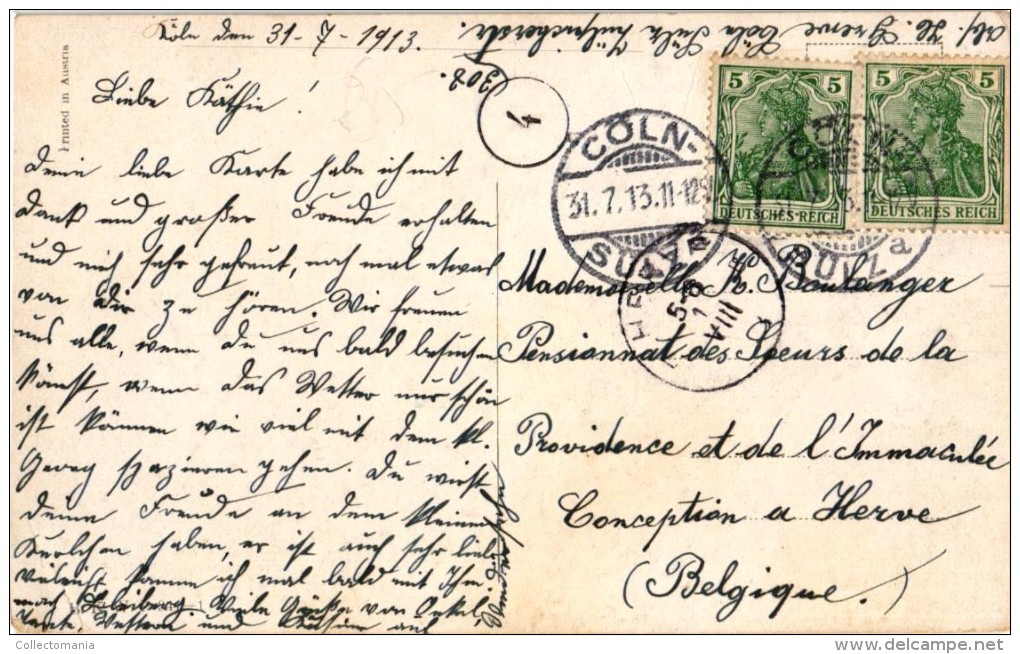 Köln den 31-7-1913.
Abs. H. Greve Cöln Sülz Zülpicherstr.
308.
Printed in Austria
4
Liebe Käthie!
Deine liebe Karte habe ich mit
Dank und großer Freude erhalten
und mich sehr gefreut, noch mal etwas
von Dir zu hören. Wir freuen
uns alle, wenn du uns bald besuchen
kömst, wenn das Wetter nur schön
ist können wir viel mit dem kl.
Georg spazieren gehen. Du wirst
deine Freude an dem kleinen
Kerlchen haben, er ist auch sehr lieb
vieleicht komme ich mal bald mit Ihm
nach Viele Grüße von Onkel,
Tante, Vettern und Cousine auf
Wiedersehn
5 5
DEUTSCHES REICH DEUTSCHES REICH
CÖLN-
31.7.13.11-12
SÜLZ
CÖLN-
SÜLZ
a
HERVE
Mademoiselle K. Boulanger
Pensionnat des Soeurs de la
Providence et de l'Immaculée
Conception a Herve
(Belgique.)
Collectomania
delcampe.net